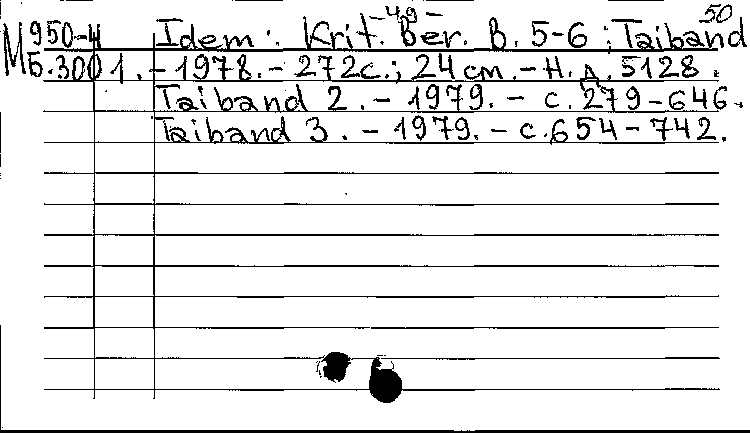 - 49 -
50
М950-4 Idem: Krit. Ber. B. 5-6; Taiband
Б.300 1. - 1978. - 272с.; 24 cm. - Н.д. 5128.
Taiband 2. - 1979. - с. 279-646.
Taiband 3. - 1979. - с. 654-742.